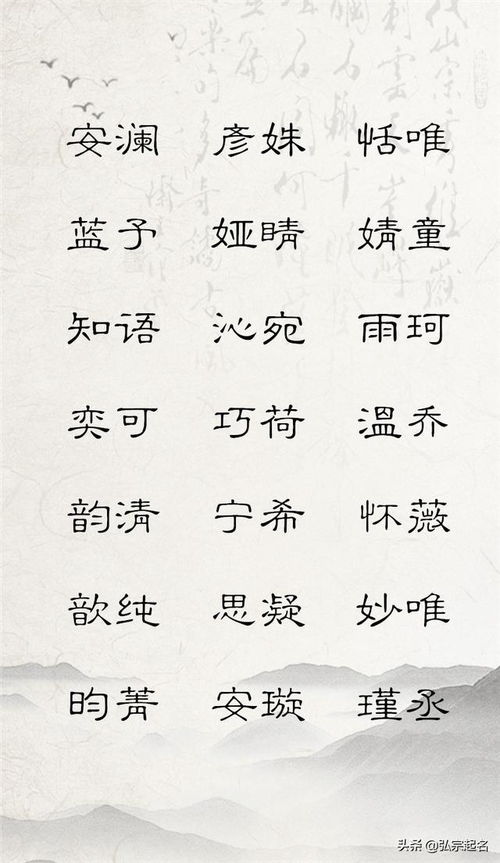 安澜 彦姝 恬唯
蓝予 娅晴 婧童
知语 沁宛 雨珂
奕可 巧荷 温乔
韵清 宁希 怀薇
歆纯 思凝 妙唯
昀菁 安璇 瑾丞
头条@弘宗起名